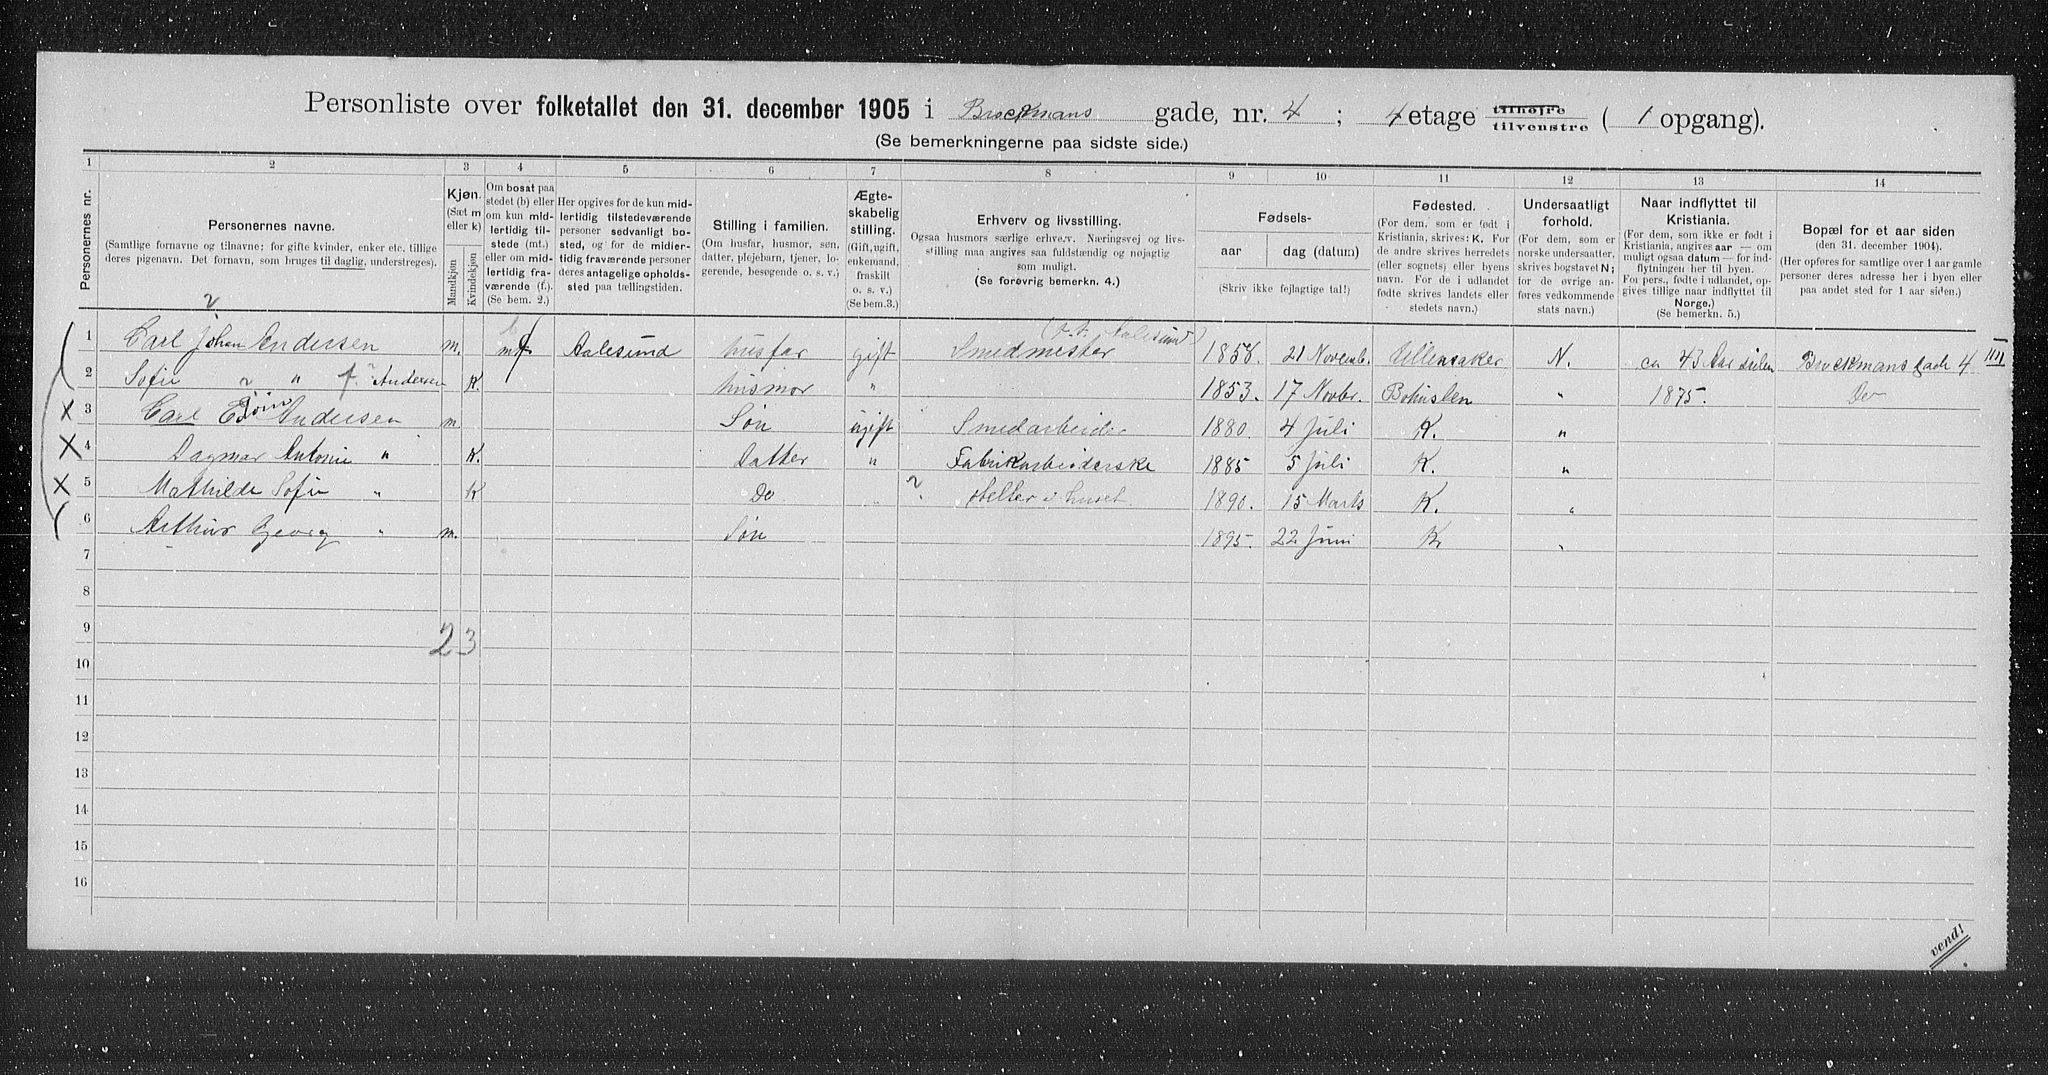 Personliste over folketallet den 31. december 1905 i Brockmans gade, nr. 4 ; 4 etage tilhøjre tilvenstre ( 1 opgang).
(Se bemerkningerne paa sidste side.)
1 2 3 4 5 6 7 8 9 10 11 12 13 14
Personernes nr.
Personernes navne.
(Samtlige fornavne og tilnavne; for gifte kvinder, enker etc. tillige
deres pigenavn. Det fornavn, som bruges til daglig, understreges).
Kjøn.
(Sæt m
eller k)
Mandkjøn
Kvindekjøn
Om bosat paa
stedet (b) eller
om kun mid-
lertidig til-
stede (mt.)
eller om mid-
lertidig fra-
værende (f.).
(Se bem. 2.)
Her opgives for de kun mid-
lertidig tilstedeværende
personer sedvanligt bo-
sted, og for de midler-
tidig fraværende personer
deres antagelige opholds-
sted paa tællingstiden.
Stilling i familien.
(Om husfar, husmor, søn,
datter, plejebarn, tjener, lo-
gerende, besøgende o. s. v.)
Ægte-
skabelig
stilling.
(Gift, ugift,
enkemand,
fraskilt
o. s. v.)
(Se bem.3.)
Erhverv og livsstilling.
Ogsaa husmors særlige erhverv. Næringsvej og livs-
stilling maa angives saa fuldstændig og nøjagtig
som muligt.
(Se forøvrig bemerkn. 4.)
Fødsels-
aar
dag (datum)
(Skriv ikke fejlagtige tal!)
Fødested.
(For dem, som er født i
Kristiania, skrives: K. For
de andre skrives herredets
(eller sognets) eller byens
navn. For de i udlandet
fødte skrives landets eller
stedets navn.)
Undersaatligt
forhold.
(For dem, som er
norske undersaatter,
skrives bogstavet N;
for de øvrige an-
føres vedkommende
stats navn.)
Naar indflyttet til
Kristiania.
(For dem, som ikke er født i
Kristiania, angives aar — om
muligt ogsaa datum — for ind-
flytningen her til byen.
For pers., fødte i udlandet, op-
gives tillige naar indflyttet til
Norge.)
(Se bemerkn. 5.)
Bopæl for et aar siden
(den 31. december 1904).
(Her opføres for samtlige over 1 aar gamle
personer deres adresse her i byen eller
paa andet sted for 1 aar siden.)
1 Carl Johan Andersen m. Aalesund husfar gift Smedmester 1858. 21 Novemb. Ullensaker N. ca 43 Aar siden Brockmans gade 4 III
2 Sofie " f. Andersen K. husmor " 1853. 17 Novbr. Bohuslen " 1875. Do
3 Carl Andersen m Søn ugift Smedarbeider 1880. 4 Juli K. "
4 Dagmar Antonie " K. Datter " Fabrikarbeiderske 1885 5 Juli K. "
5 Mathilde Sofie " K Do " steller i huset 1890. 15 Marts K. "
6 Arthur Georg " m. Søn 1895. 22 Juni K. "
7
8
9
23
10
11
12
13
14
15
16
vend!